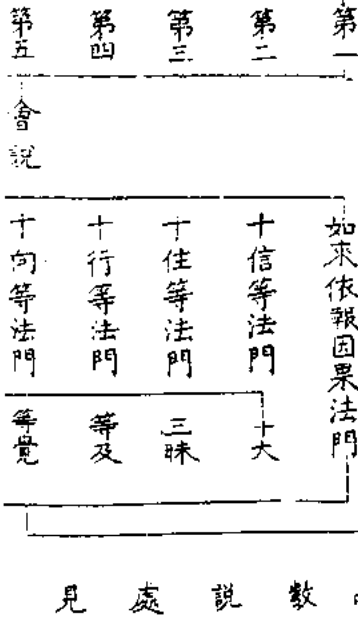 第一
第二
第三
第四
第五
會說
如來依報因果法門
十信等法門
十住等法門
十行等法門
十向等法門
十大
三昧
等及
等覺
數說處見